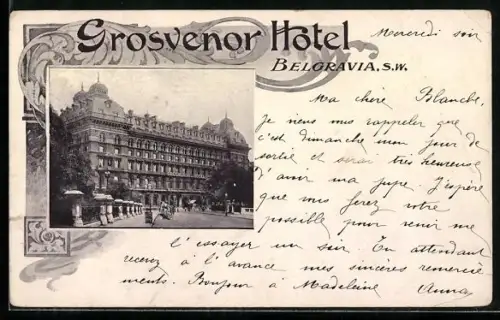 Grosvenor Hotel
BELGRAVIA, S.W.
Mercredi soir
Ma chère Blanche,
Je viens vous rappeler que
c'est dimanche mon jour de
sortie et serai très heureuse
d'avoir ma jupe. J'espère
que vous ferez votre
possible pour venir me
l'essayer un soir. En attendant
recevez à l'avance mes sincères remercie
ments. Bonjour à Madeleine
Anna